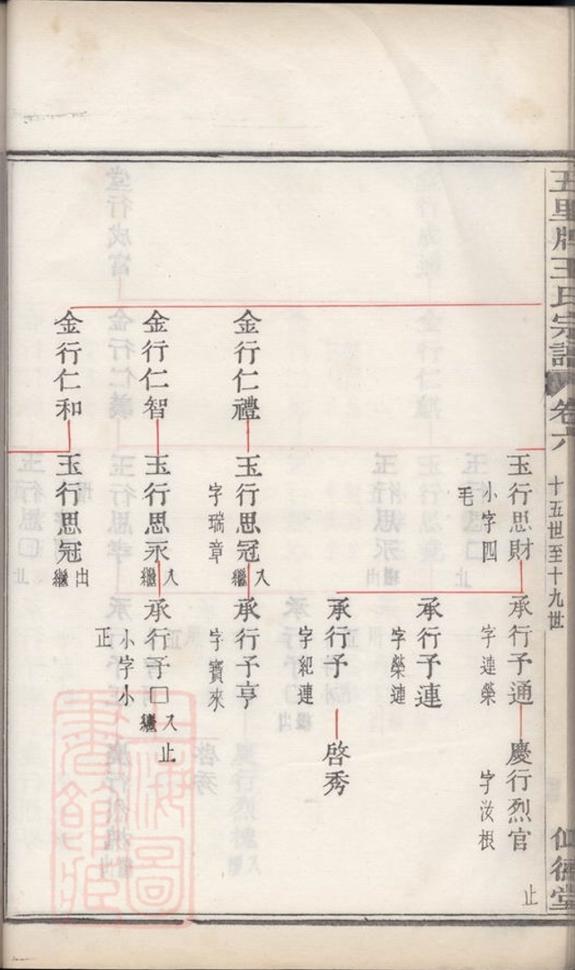 五里牌王氏宗譜
卷六
十五世至十九世
玉行思財
小字四
毛
承行予通
字連榮
慶行烈官
字汝根
止
承行予連
字榮連
承行予
字紀連
啓秀
金行仁禮
玉行思冠入
繼
字瑞章
承行予亨
字寶來
金行仁智
玉行思永入
繼
承行予□入
繼
小字小
正
止
金行仁和
玉行思冠出
繼